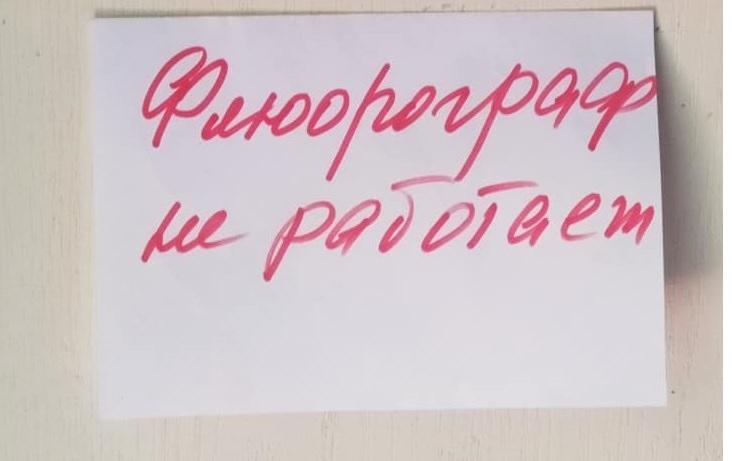 Флюорограф
не работает